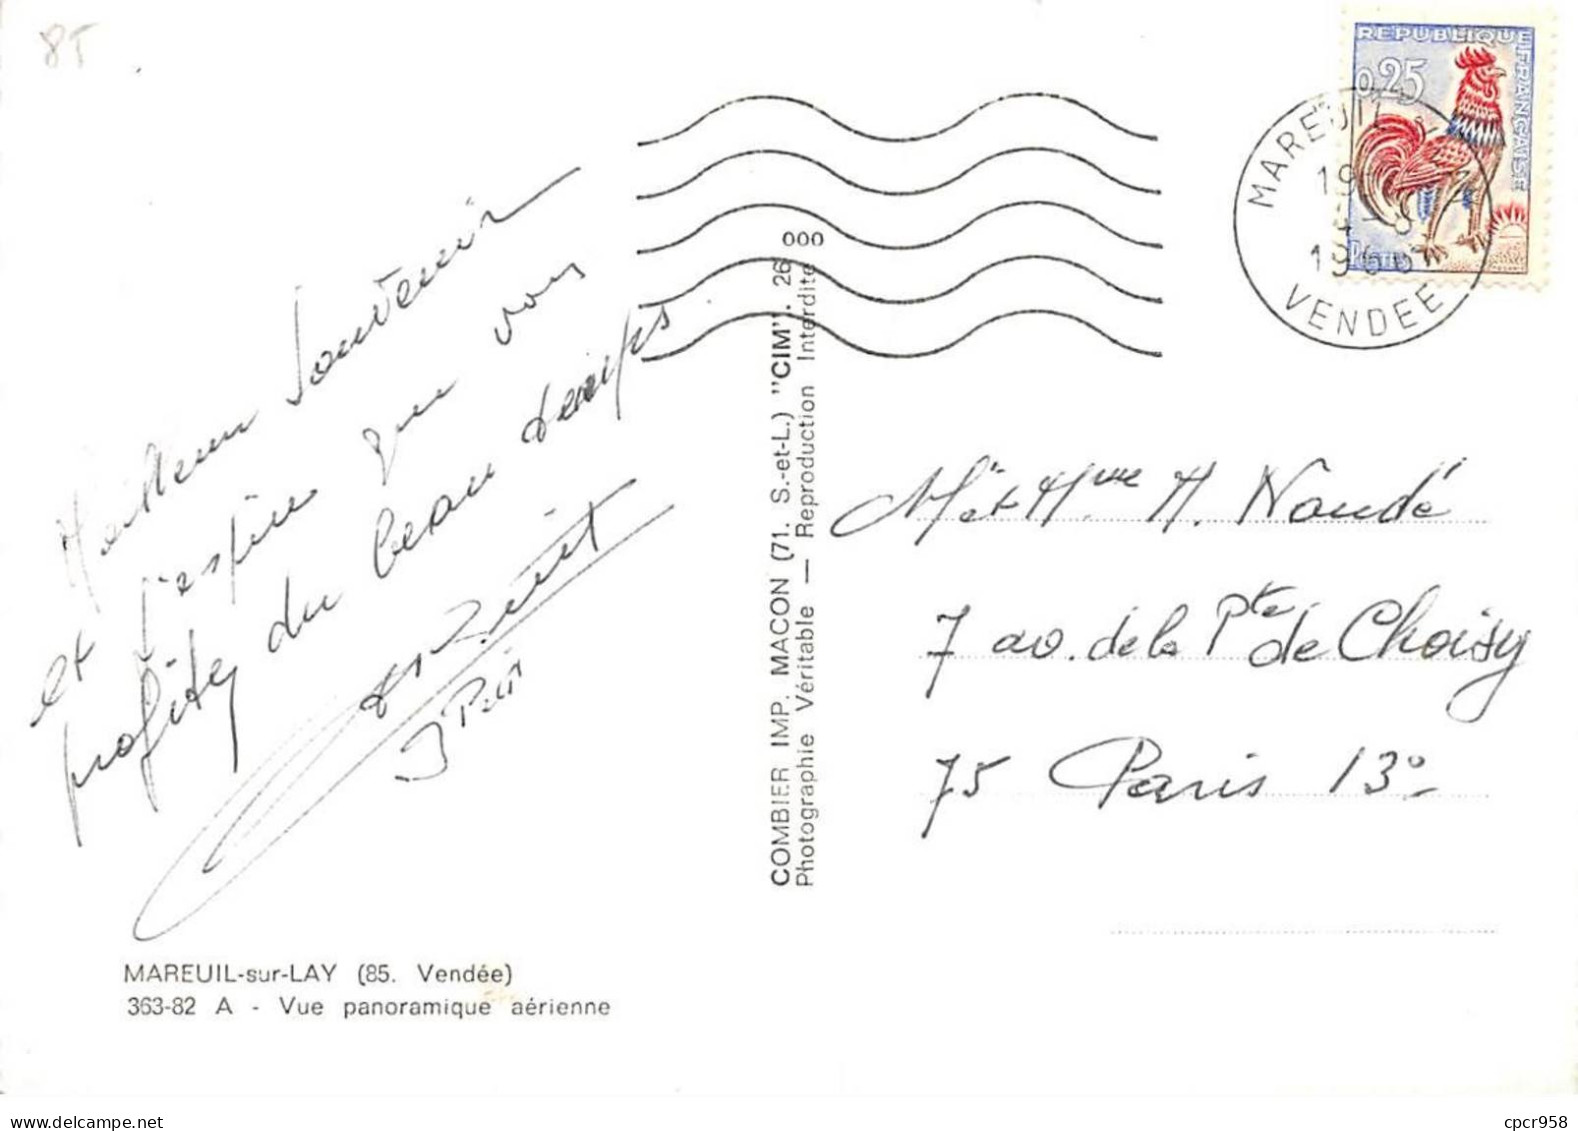 85
REPUBLIQUE FRANÇAISE
0,25
POSTES
MAREUIL
19
196
VENDEE
000
Meilleur Souvenir
et j'espère que vous
profitez du beau temps
J Petit
COMBIER IMP. MACON (71. S.-et-L.) "CIM". 26
Photographie Véritable — Reproduction Interdite
Mr et Mme A. Naudé
7 av. de la Pte de Choisy
75 Paris 13e
MAREUIL-sur-LAY (85. Vendée)
363-82 A - Vue panoramique aérienne
cpcr958